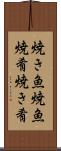 焼き魚焼魚
焼肴焼き肴